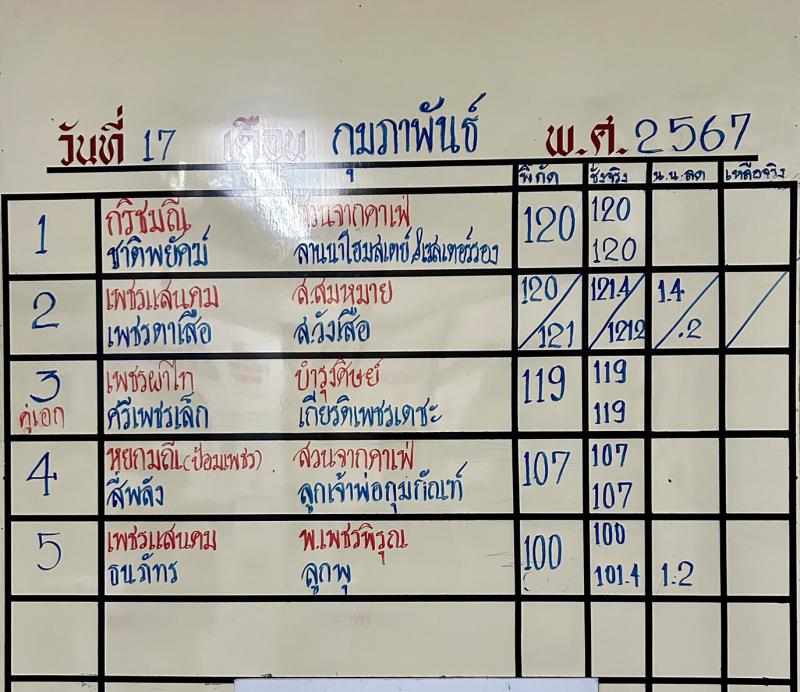 วันที่ 17 เดือน กุมภาพันธ์ พ.ศ. 2567
พิกัด ชั่งจริง น.น.ลด เหลือจริง
1 กวิชมณี สวนจากคาเฟ่ 120 120
ชาติพยัคฆ์ ลานนาโฮมสเตย์,&เรสเตอร์รอง 120
2 เพชรแสนคม ส.สมหมาย 120 121.4 1.4
เพชรตาเสือ ส.วังเสือ 121 121.2 .2
3 เพชรผาไท บำรุงศิษย์ 119 119
คู่เอก ศรีเพชรเล็ก เกียรติเพชรเดชะ 119
4 หยกมณี(ป้อมเพชร) สวนจากคาเฟ่ 107 107
สี่พลัง ลูกเจ้าพ่อกุมภัณฑ์ 107
5 เพชรแสนคม พ.เพชรพิรุณ 100 100
ธนภัทร ลูกพุ 101.4 1.2